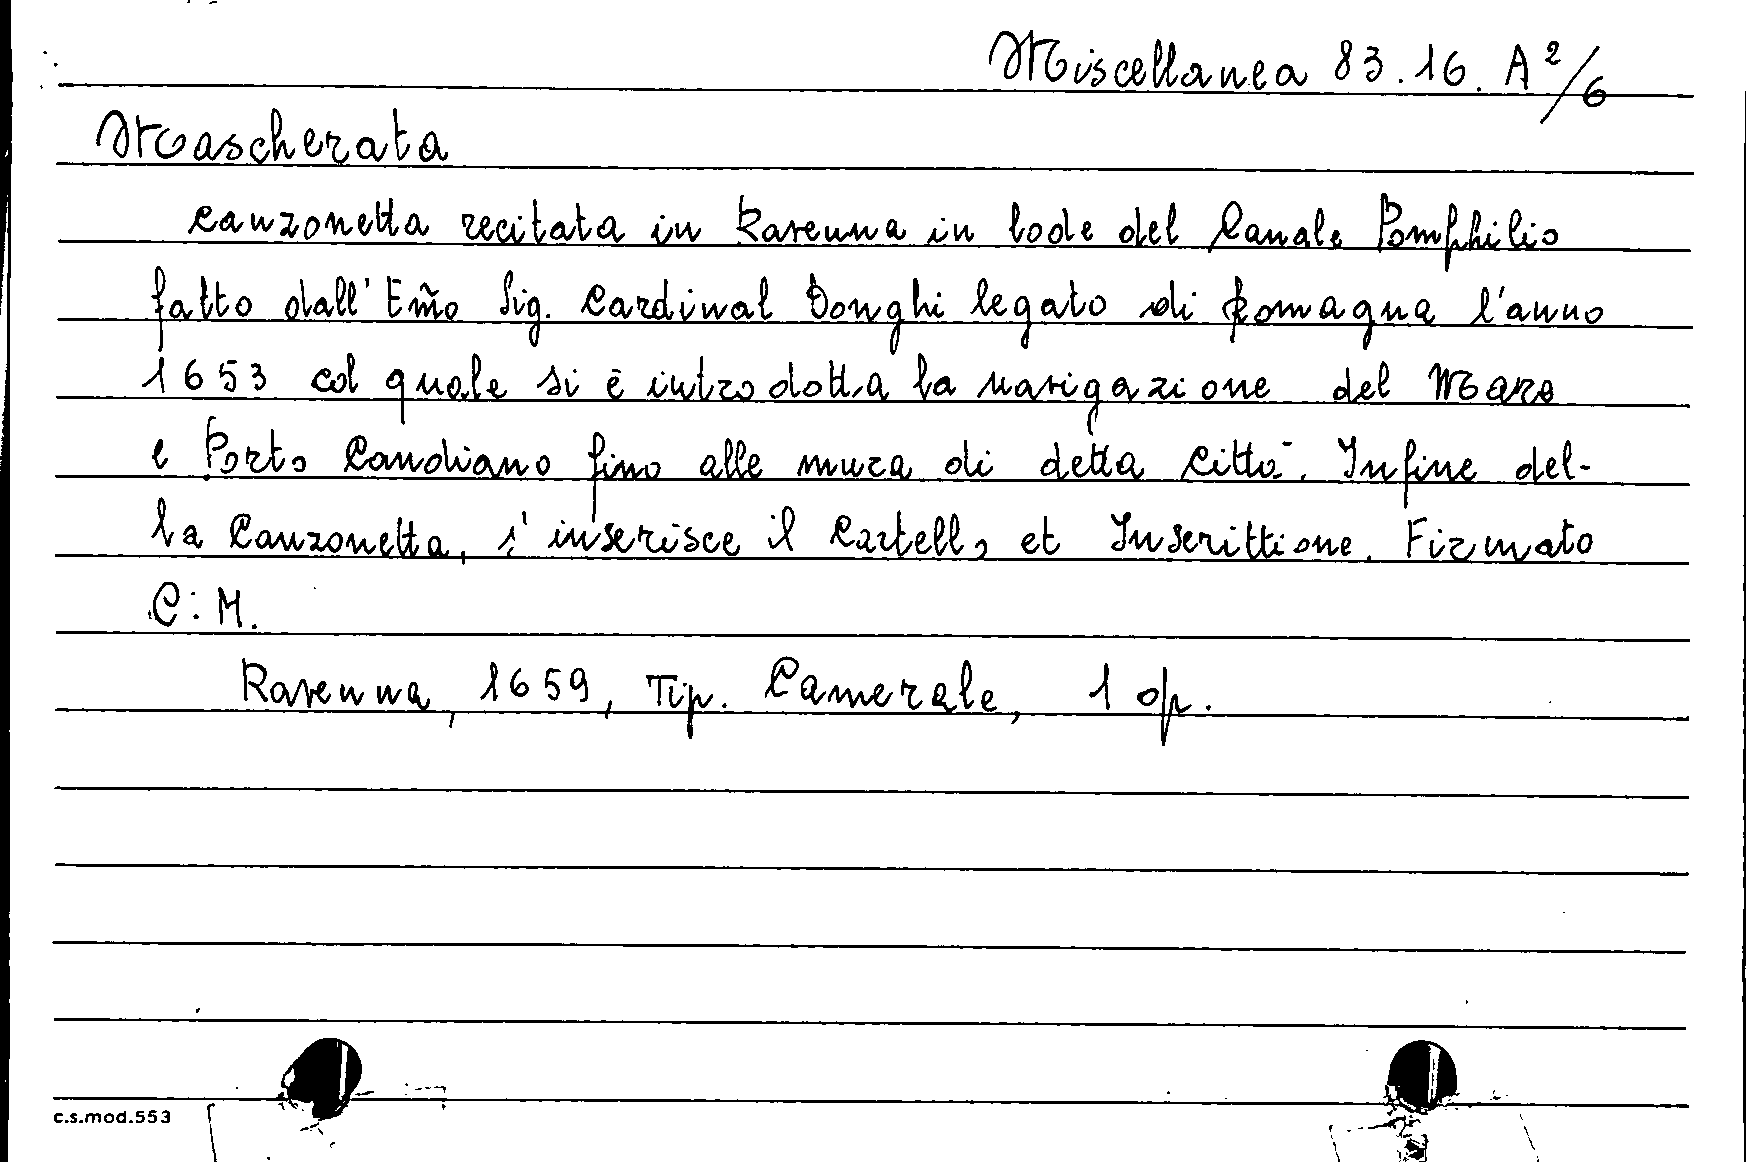 Miscellanea 83.16. A²/6
Mascherata
Canzonetta recitata in Ravenna in lode del Canale Pomphilio
fatto dall' Em̃o Sig. Cardinal Donghi legato di Romagna l'anno
1653 col quale si è introdotta la navigazione del Mare
e Porto Candiano fino alle mura di detta Città. Infine del-
la Canzonetta, s'inserisce il Cartello et Inscrittione. Firmato
C: M.
Ravenna, 1659, Tip. Camerale, 1 op.
c.s.mod.553